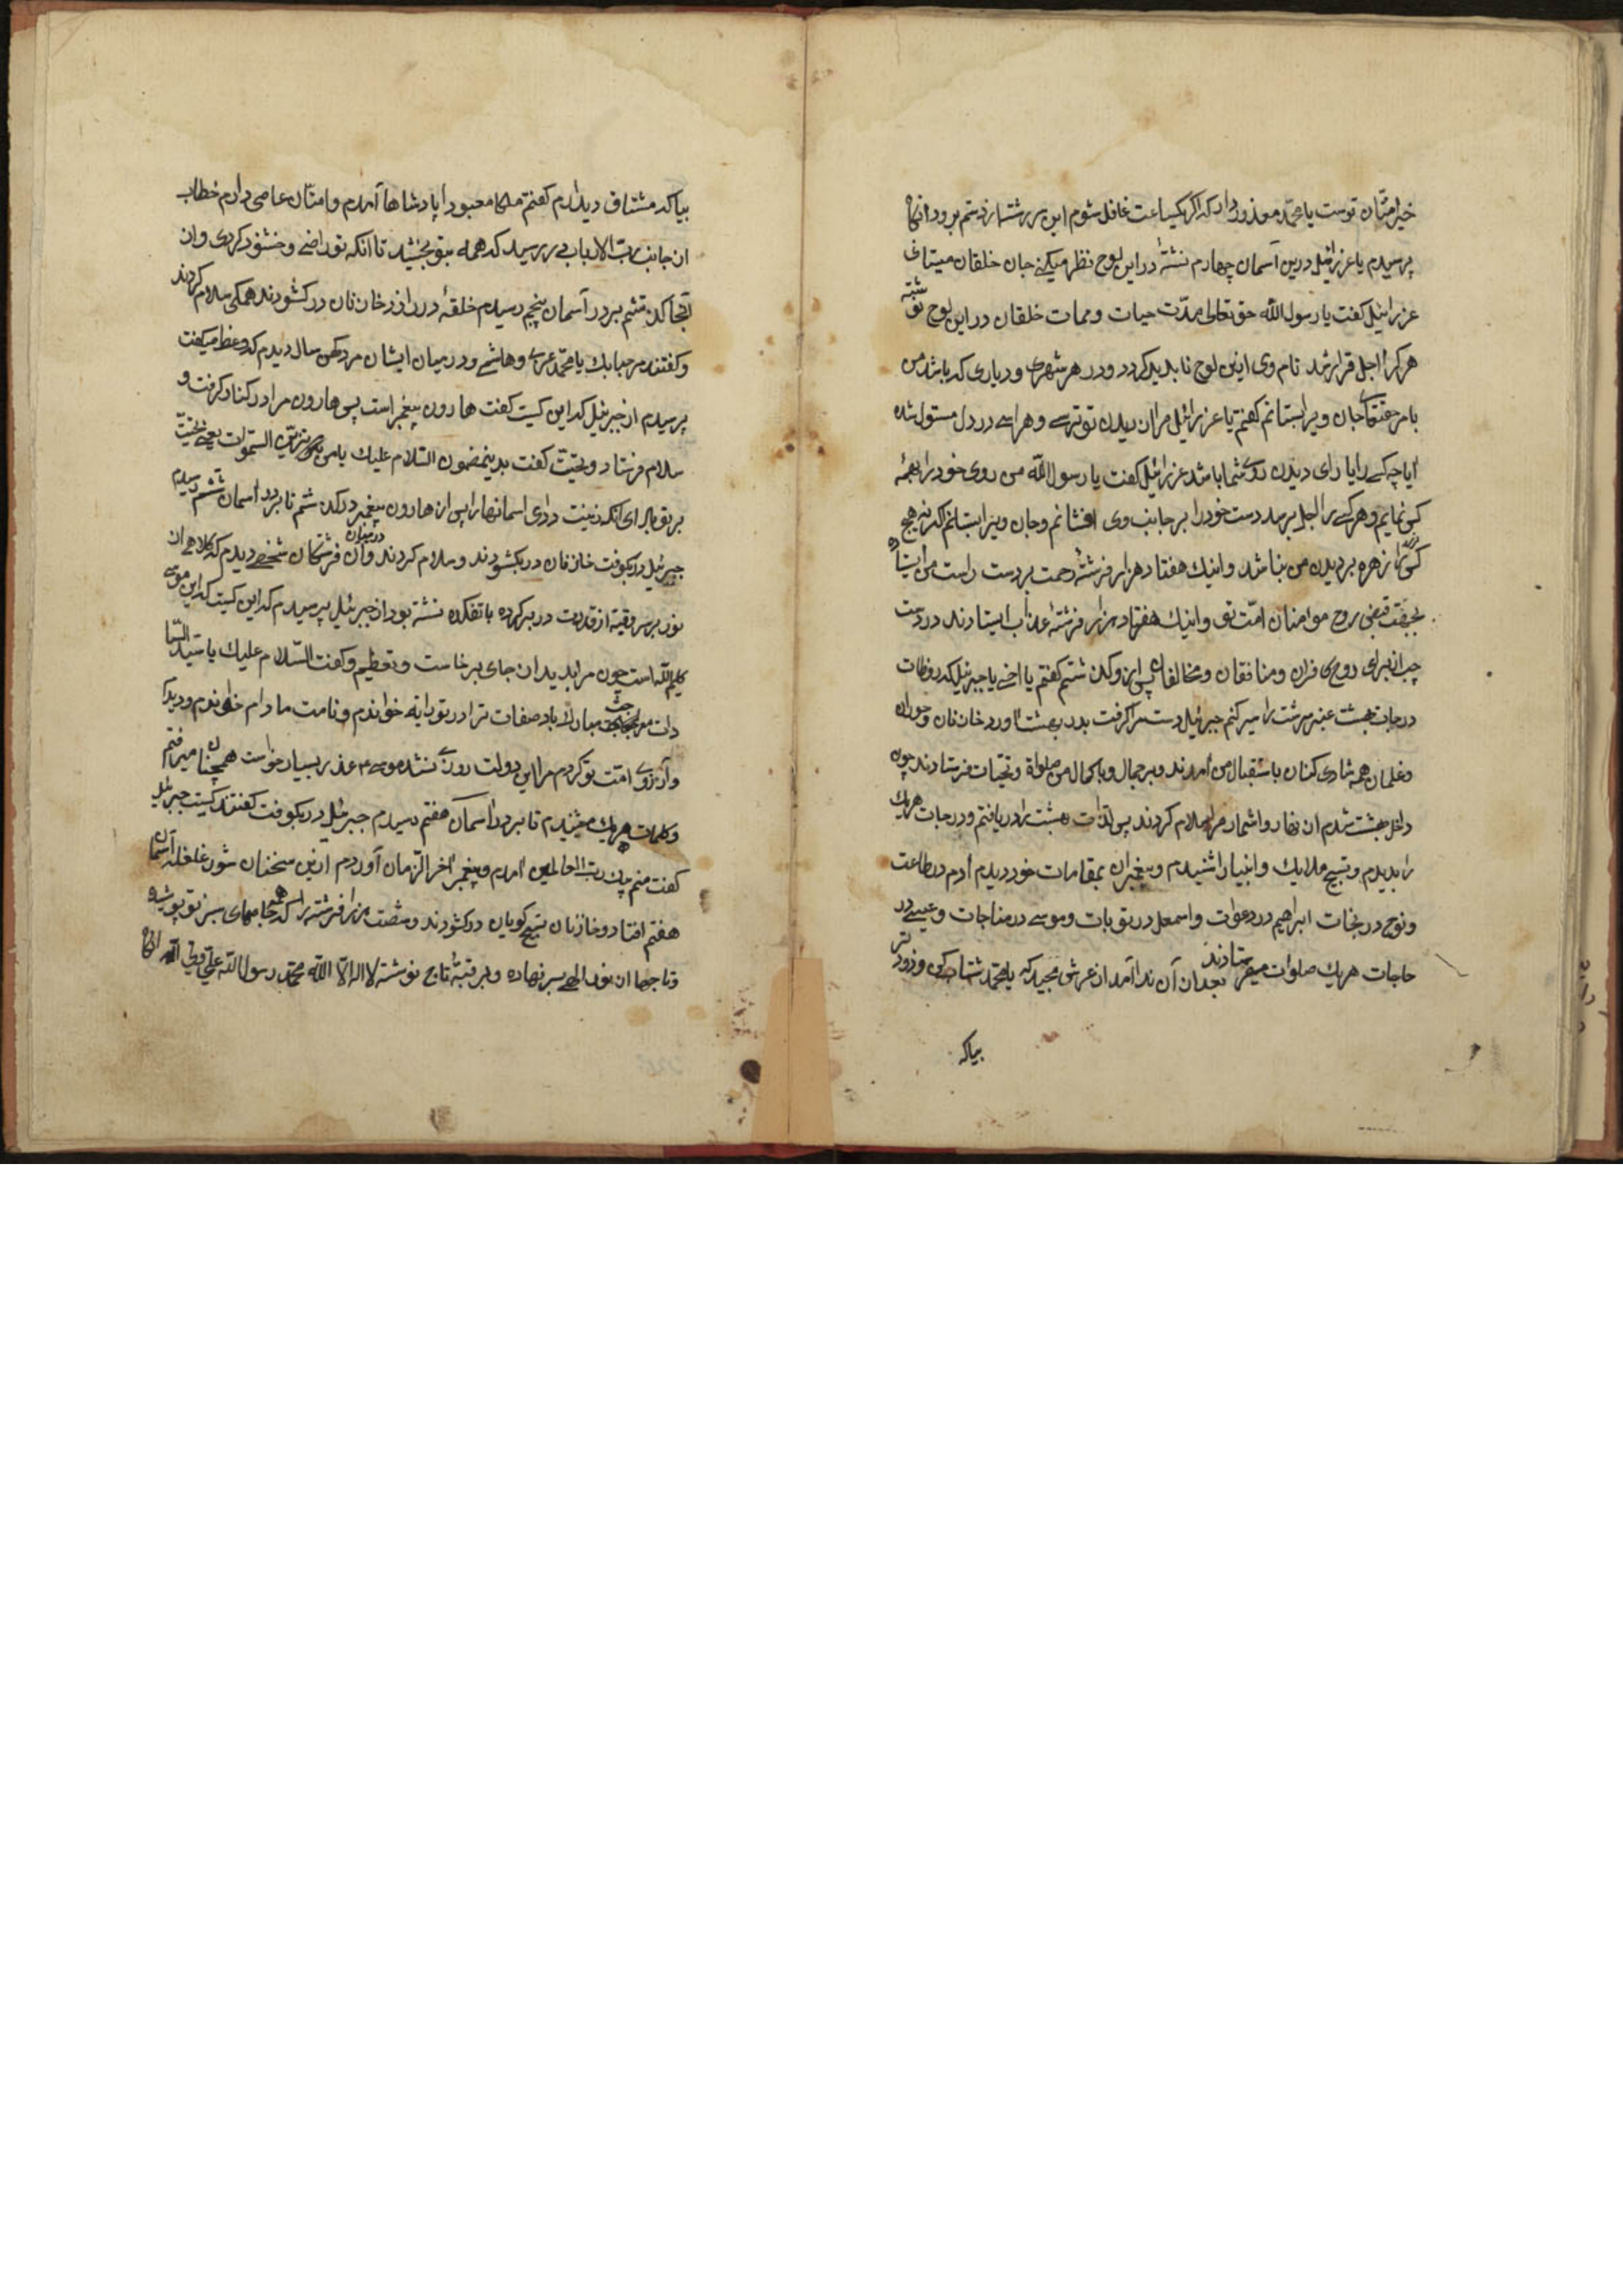 خیر امتان توست یا محمد معذور دار که اگر یکساعت غافل شوم این سر رشته از دستم برود انکاه
پرسیدم یا عزرائیل درین آسمان چهارم نشستهٔ در این لوح نظر میکنی جان خلقان میستانی
عزرائیل کفت یا رسول الله حق تعالی مدّت حیات و ممات خلقان در این لوح نوشته
هر کرا اجل قرا رسد نام وی ازین لوح نابدید کردد و در هر شهری و دیاری که باشد من
بامر حقتعالی جان ویرا بستانم کفتم یا عزرائیل مرا از دیدن تو ترسی و هراسی در دل مستولی شده
ایا چه کسی را یارای دیدن روی شما باشد عزرائیل کفت یا رسول الله من روی خود را بهمه
کس نمایم و هر کسی را اجل برسد دست خود را بر جانب وی افشانم و جان ویرا بستانم که نه هیچ
کس را زهره بر دیدن من نباشد و اینک هفتاد هزار فرشتهٔ رحمت بر دست راست من ایستاده
بجهت قبض روح مؤمنان امّت تو و اینک هفتاد هزار فرشتهٔ عذاب ایستادند در دست
چپ از برای روح کافران و منافقان و مخالفان پس از و کذشتم کفتم یا اخی یا جبرئیل که روضات
درجات بهشت عنبر سرشت را سیر کنم جبرئیل دست مرا کرفت بدر بهشت اورد خازنان و حوران
و غلمان همه شادی کنان باستقبال من آمدند و بر جمال و با کمال من صلوة و تحیّات فرستادند چون
داخل بهشت شدم انهار و اشمار مرا سلام کردند پس لذّات بهشت را دریافتم و درجات هر یک
را بدیدم و تسبیح ملایک و انبیا را شنیدم و پیغمبران بمقامات خود دیدم آدم در طاعت
و نوح در نجات ابراهیم در دعوات و اسمعیل در توبات و موسی در مناجات و عیسی در
حاجات هر یک صلوات میفرستادند بعد از آن ندا آمد از عرش مجید که یا محمد شتاب کن و زودتر
بیا که
بیا که مشتاق دیدارم کفتم ملکا معبودا پادشاها آمدم و امتّان عاصی دارم خطاب
از جانب ربّ الارباب در رسید که همه بتو بخشید تا آنکه تو راضی و خشنود کردی و از
آنجا کذشتم بر در آسمان پنجم رسیدم حلقهٔ در زد خازنان در کشودند همکی سلام کردند
و کفتند مرحبا بک یا محمّد عربی و هاشمی و در میان ایشان مرد کهن سال دیدم که وعظ میکفت
پرسیدم از جبرئیل که این کیست کفت هارون پیغمبر است پس هارون مرا در کنار کرفت و
سلام فرستاد و تحیّت کفت بدینمضمون السّلام علیک یا من زیّن السّموات یعنی تحیّت
بر تو باد ای آنکه زینت دادی اسمانها را پس از هارون پیغمبر در کذشتم تا بر در اسمان ششم رسیدم
جبرئیل در بکوفت خازنان در بکشودند و سلام کردند در میان آن فرشتکان شخصی دیدم که کلاهی از
نور بر سر و قیه از قدرت در بر کرده با تفکره نشسته بود از جبرئیل پرسیدم که این کیست کفت این موسی
کلیم الله است چون مرا بدید از جای برخاست و تعظیم و کفت السّلام علیک یا سیّد السّا
دات مرحبا صفات ترا در توراته خواندم و نامت مادام خواندم و دیدار
و آرزوی امّت تو کردم مرا این دولت روزی نشد موسی عم عذر بسیار خواست همچنان میرفتم
و کلمات هر یک میشنیدم تا بر در آسمان هفتم رسیدم جبرئیل در بکوفت کفتند کیست جبرئیل
کفت منم پیک ربّ العالمین آمدم و پیغمبر آخر الزّمان آوردم ازین سخنان شور غلغله آسمان
هفتم افتاد و خازنان تسبیح کویان در کشودند و شصت هزار فرشته را که همه جامهای سبز نو پوشیده
و تاجها از نور الهی بسر نهاده و بر قبّهٔ تاج نوشته لا اله الّا الله محمّد رسول الله علی ولی الله انکاه